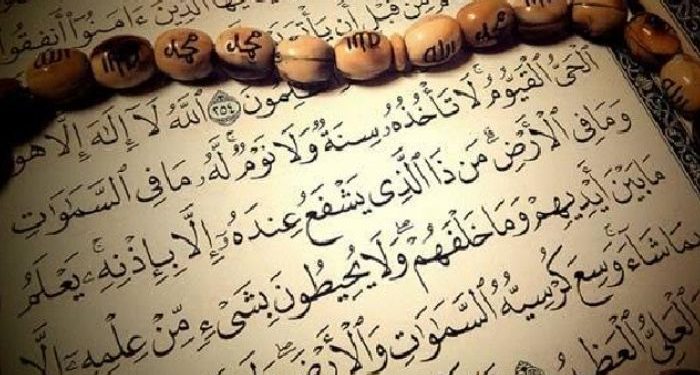 ٱلَّذِينَ ءَامَنُوٓا۟ أَنفِقُوا۟
مِّن قَبْلِ أَن
الله
محمد
محمد
الله
محمد
٢٥٤ ٱللَّهُ لَآ إِلَٰهَ إِلَّا هُوَ
ٱلْحَىُّ ٱلْقَيُّومُ ۚ لَا تَأْخُذُهُۥ سِنَةٌ وَلَا نَوْمٌ ۚ لَّهُۥ مَا فِى ٱلسَّمَٰوَٰتِ
وَمَا فِى ٱلْأَرْضِ ۗ مَن ذَا ٱلَّذِى يَشْفَعُ عِندَهُۥٓ إِلَّا بِإِذْنِهِۦ ۚ يَعْلَمُ
مَا بَيْنَ أَيْدِيهِمْ وَمَا خَلْفَهُمْ ۖ وَلَا يُحِيطُونَ بِشَىْءٍ مِّنْ عِلْمِهِۦٓ إِلَّا
بِمَا شَآءَ ۚ وَسِعَ كُرْسِيُّهُ ٱلسَّمَٰوَٰتِ وَٱلْأَرْضَ ۖ
ٱلْعَلِىُّ ٱلْعَظِيمُ